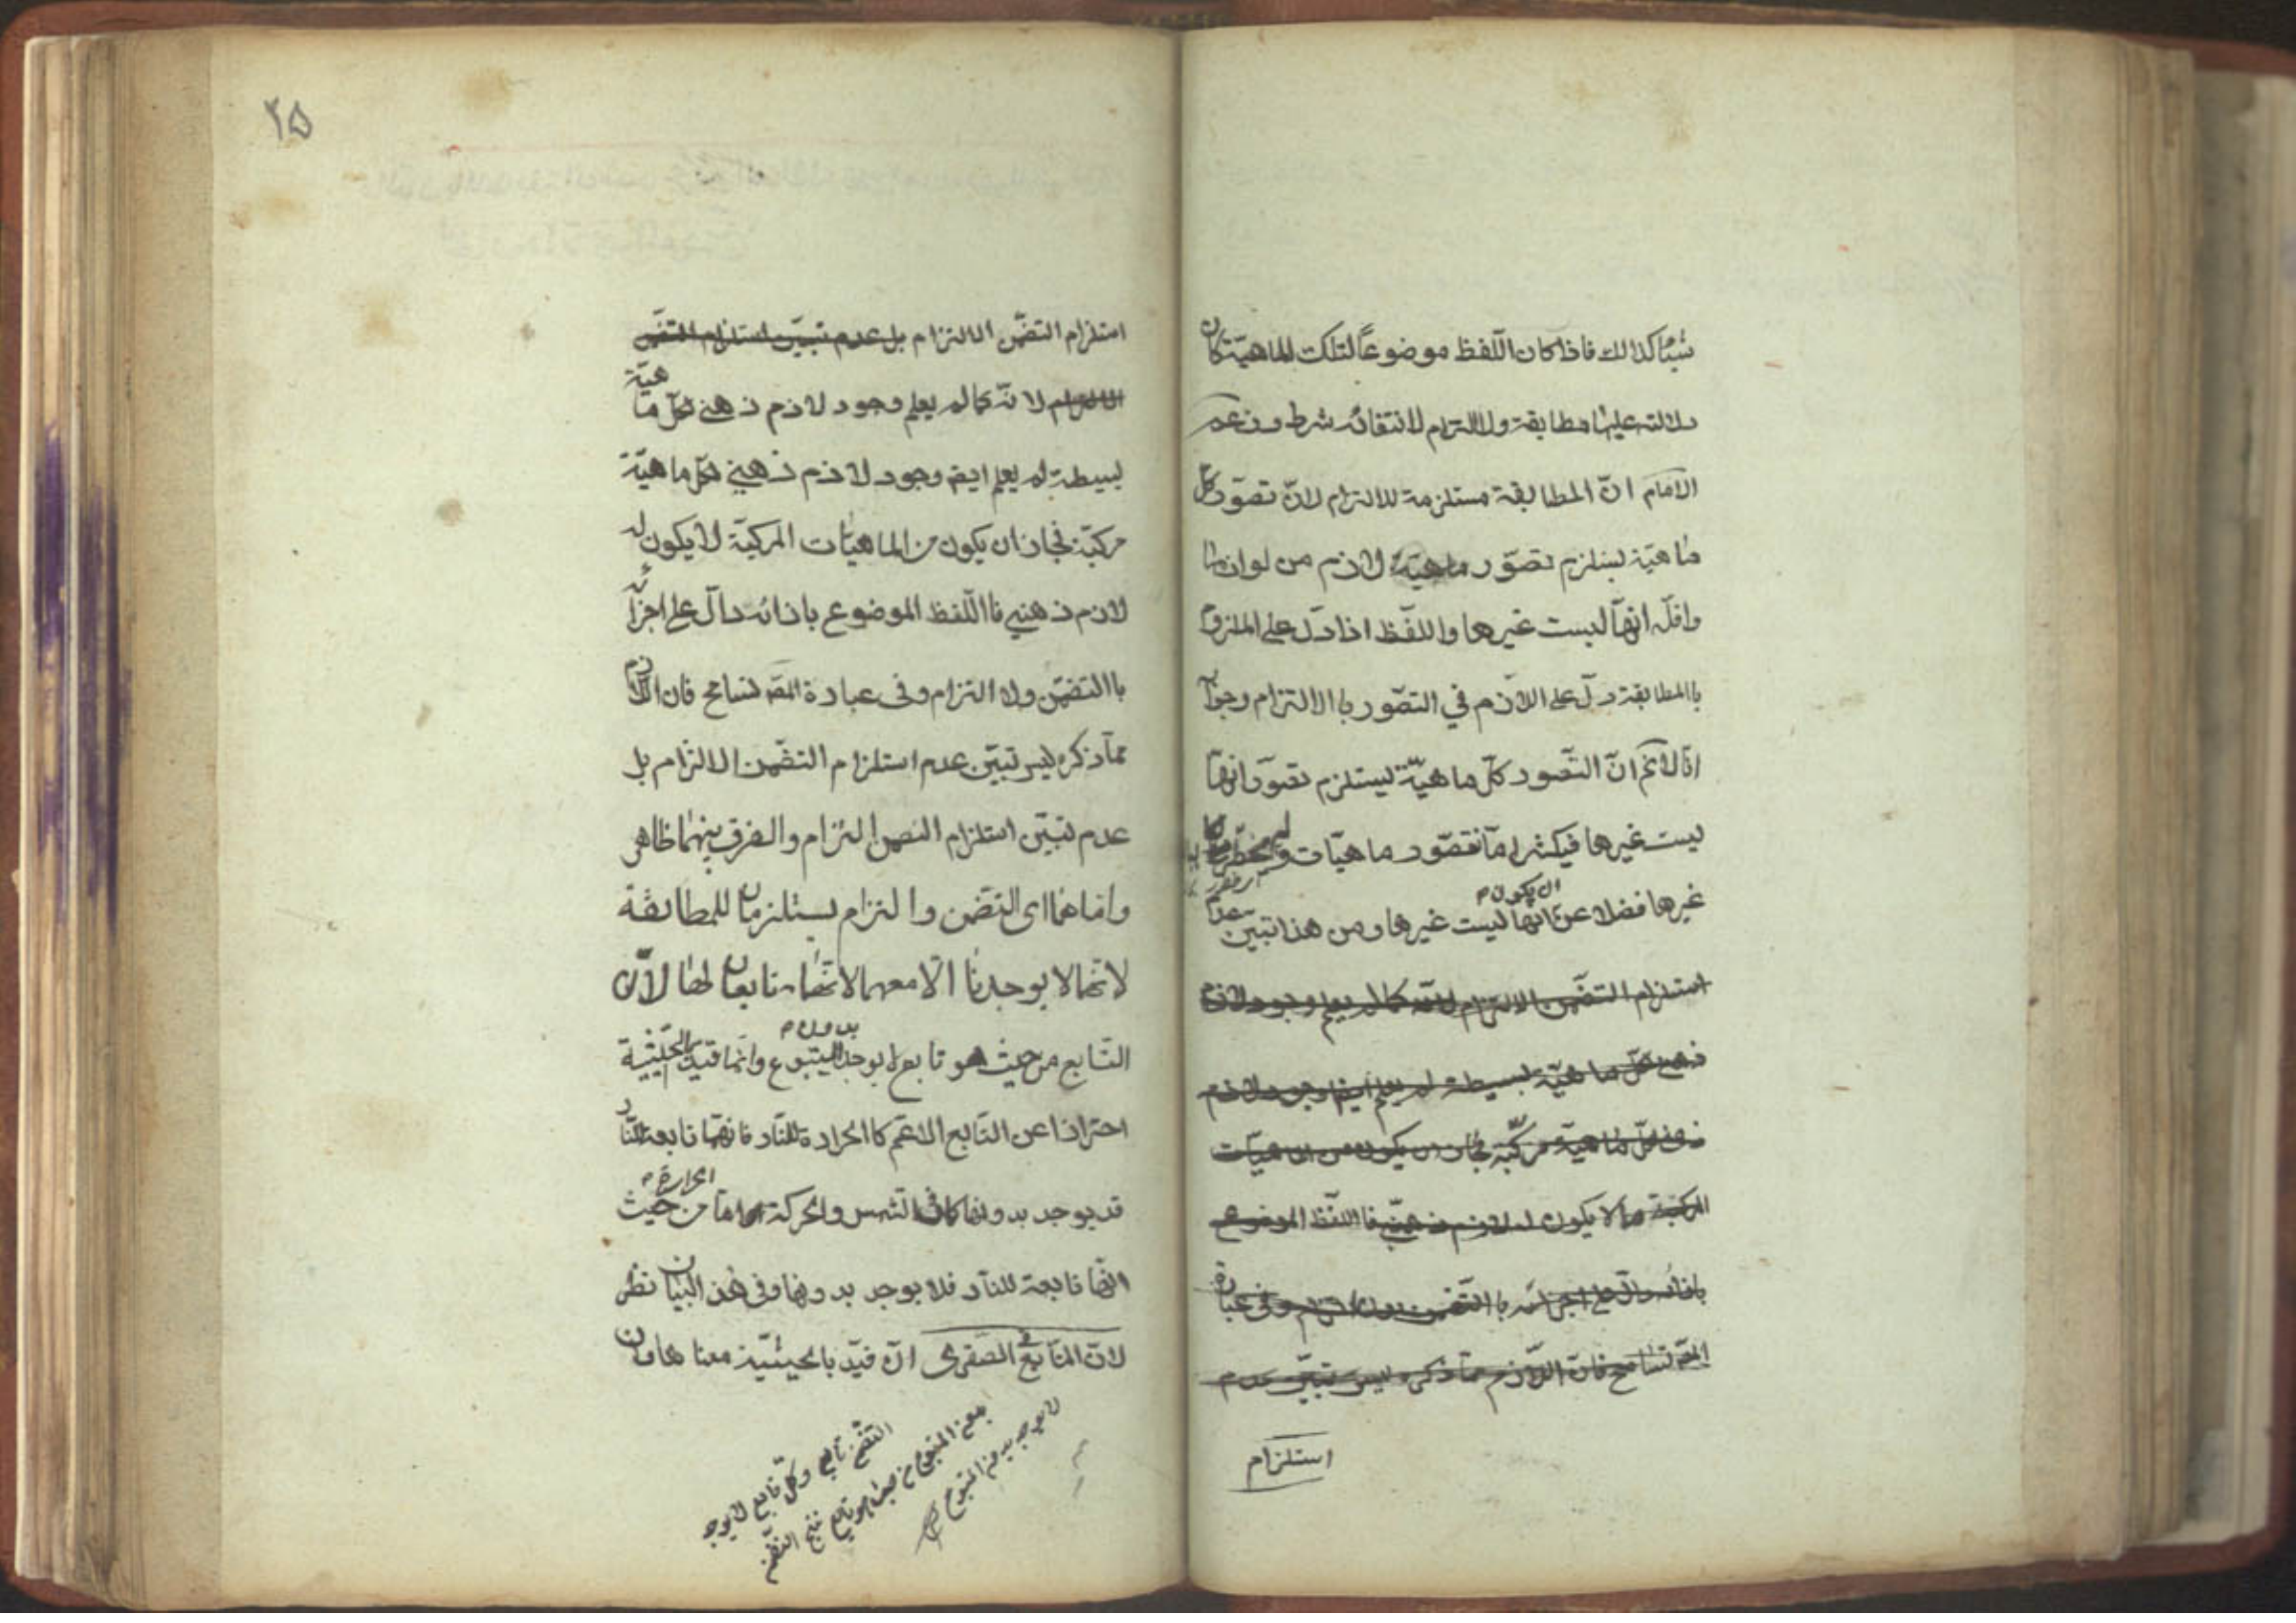 شیئا كذالك فاذا كان اللّفظ موضوعًا لتلك الماهیّة كان
دلالته علیها مطابقة ولا التزام لانتفائه شرطه وزعم
الامام انّ المطابقة مستلزمة للالتزام لانّ تصوّر كلّ
ماهیّة یستلزم تصوّر ماهیّة لازم من لوازمها
واقلّه انّهآ لیست غیرها واللّفظ اذا دلّ علی الملزوم
باالمطابقة دلّ علی اللاّزم فی التصّور با الالتزام وجوابه
انّا لانم انّ التّصور كلّ ماهیّة یستلزم تصوّر انّهآ
لیست غیرها فیكثیرا مّا نتصّور ماهیّات ولم یخطر ببالنا
غیرها فضلا عن ان یكون انّها لیست غیرها ومن هذا تبیّن عدم
استلزام التضّمن الالتزام لانّه كما لم یعلم وجود لازم
ذهنی لكلّ ماهیّة بسیطة لم یعلم ایضا وجود لازم
ذهنی لكلّ ماهیّة مركّبة فجاز ان یكون من الماهیّات
المركّبة ما لا یكون له لازم ذهنّی فا اللّفظ الموضوع
باذائه دالّ علی اجزائه با التّضمن دون التزام وفی عبارة
المّص تسامح فان اللاّزم ممّا ذكره لیس تبیّن عدم
استلزام
۲۵
استلزام التضّمن الالتزام بل عدم تبیّن استلزام التضّمن
الالتزام لانّه كما لم یعلم وجود لازم ذهنی لكلّ ماهیّة
بسیطة لم یعلم ایضا وجود لازم ذهنی لكلّ ماهیّة
مركبّة فجاز ان یكون من الماهیّات المركبّة لا یكون له
لازم ذهنی فا اللّفظ الموضوع باذائه دالّ علی اجزائه
باالتضّمن ولا التزام وفی عبارة المّص تسامح فان اللاّزم
ممّا ذكره لیس تبیّن عدم استلزام التضّمن الالتزام بل
عدم تبیّن استلزام التضمن التزام والفرق بینهما ظاهر
وامّا هما ای التضّمن والتزام یستلزمان للمطابقة
لانّهما لا یوجدنا الّا معها لانّهما تابعان لها لانّ
التّابع من حیث هو تابع لا یوجد بدون المتبوع وانّما قیّد بالحیّثیة
احترازا عن التّابع الاعّم كا الحرارة للنّار فانّها تابعة للنّار
قد یوجد بدونها كما فی الشمس والحركة امّا الحرارة من حیث
انّها تابعة للنّار فلا یوجد بدونها وفی هذ البیان نظر
لانّ التّابع فی الصّغری ان قیّد بالحیثیّة معناها ان
التضّمن تابع وكلّ تابع لا یوجد
بدون المتبوع من حیث هو تابع ینتج التضّمن
لا یوجد بدون المتبوع